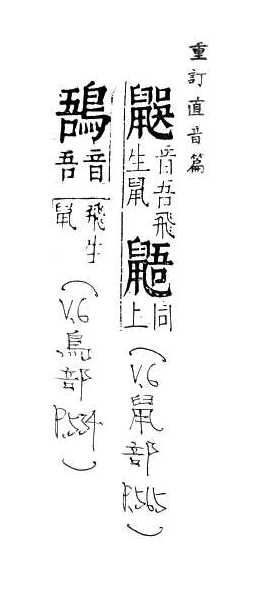 重訂直音篇
音吾飛
生鼠
鼯
同
上
(V.6鼠部P.565)
音
吾
飛生
鼠
(V.6鳥部P.534)